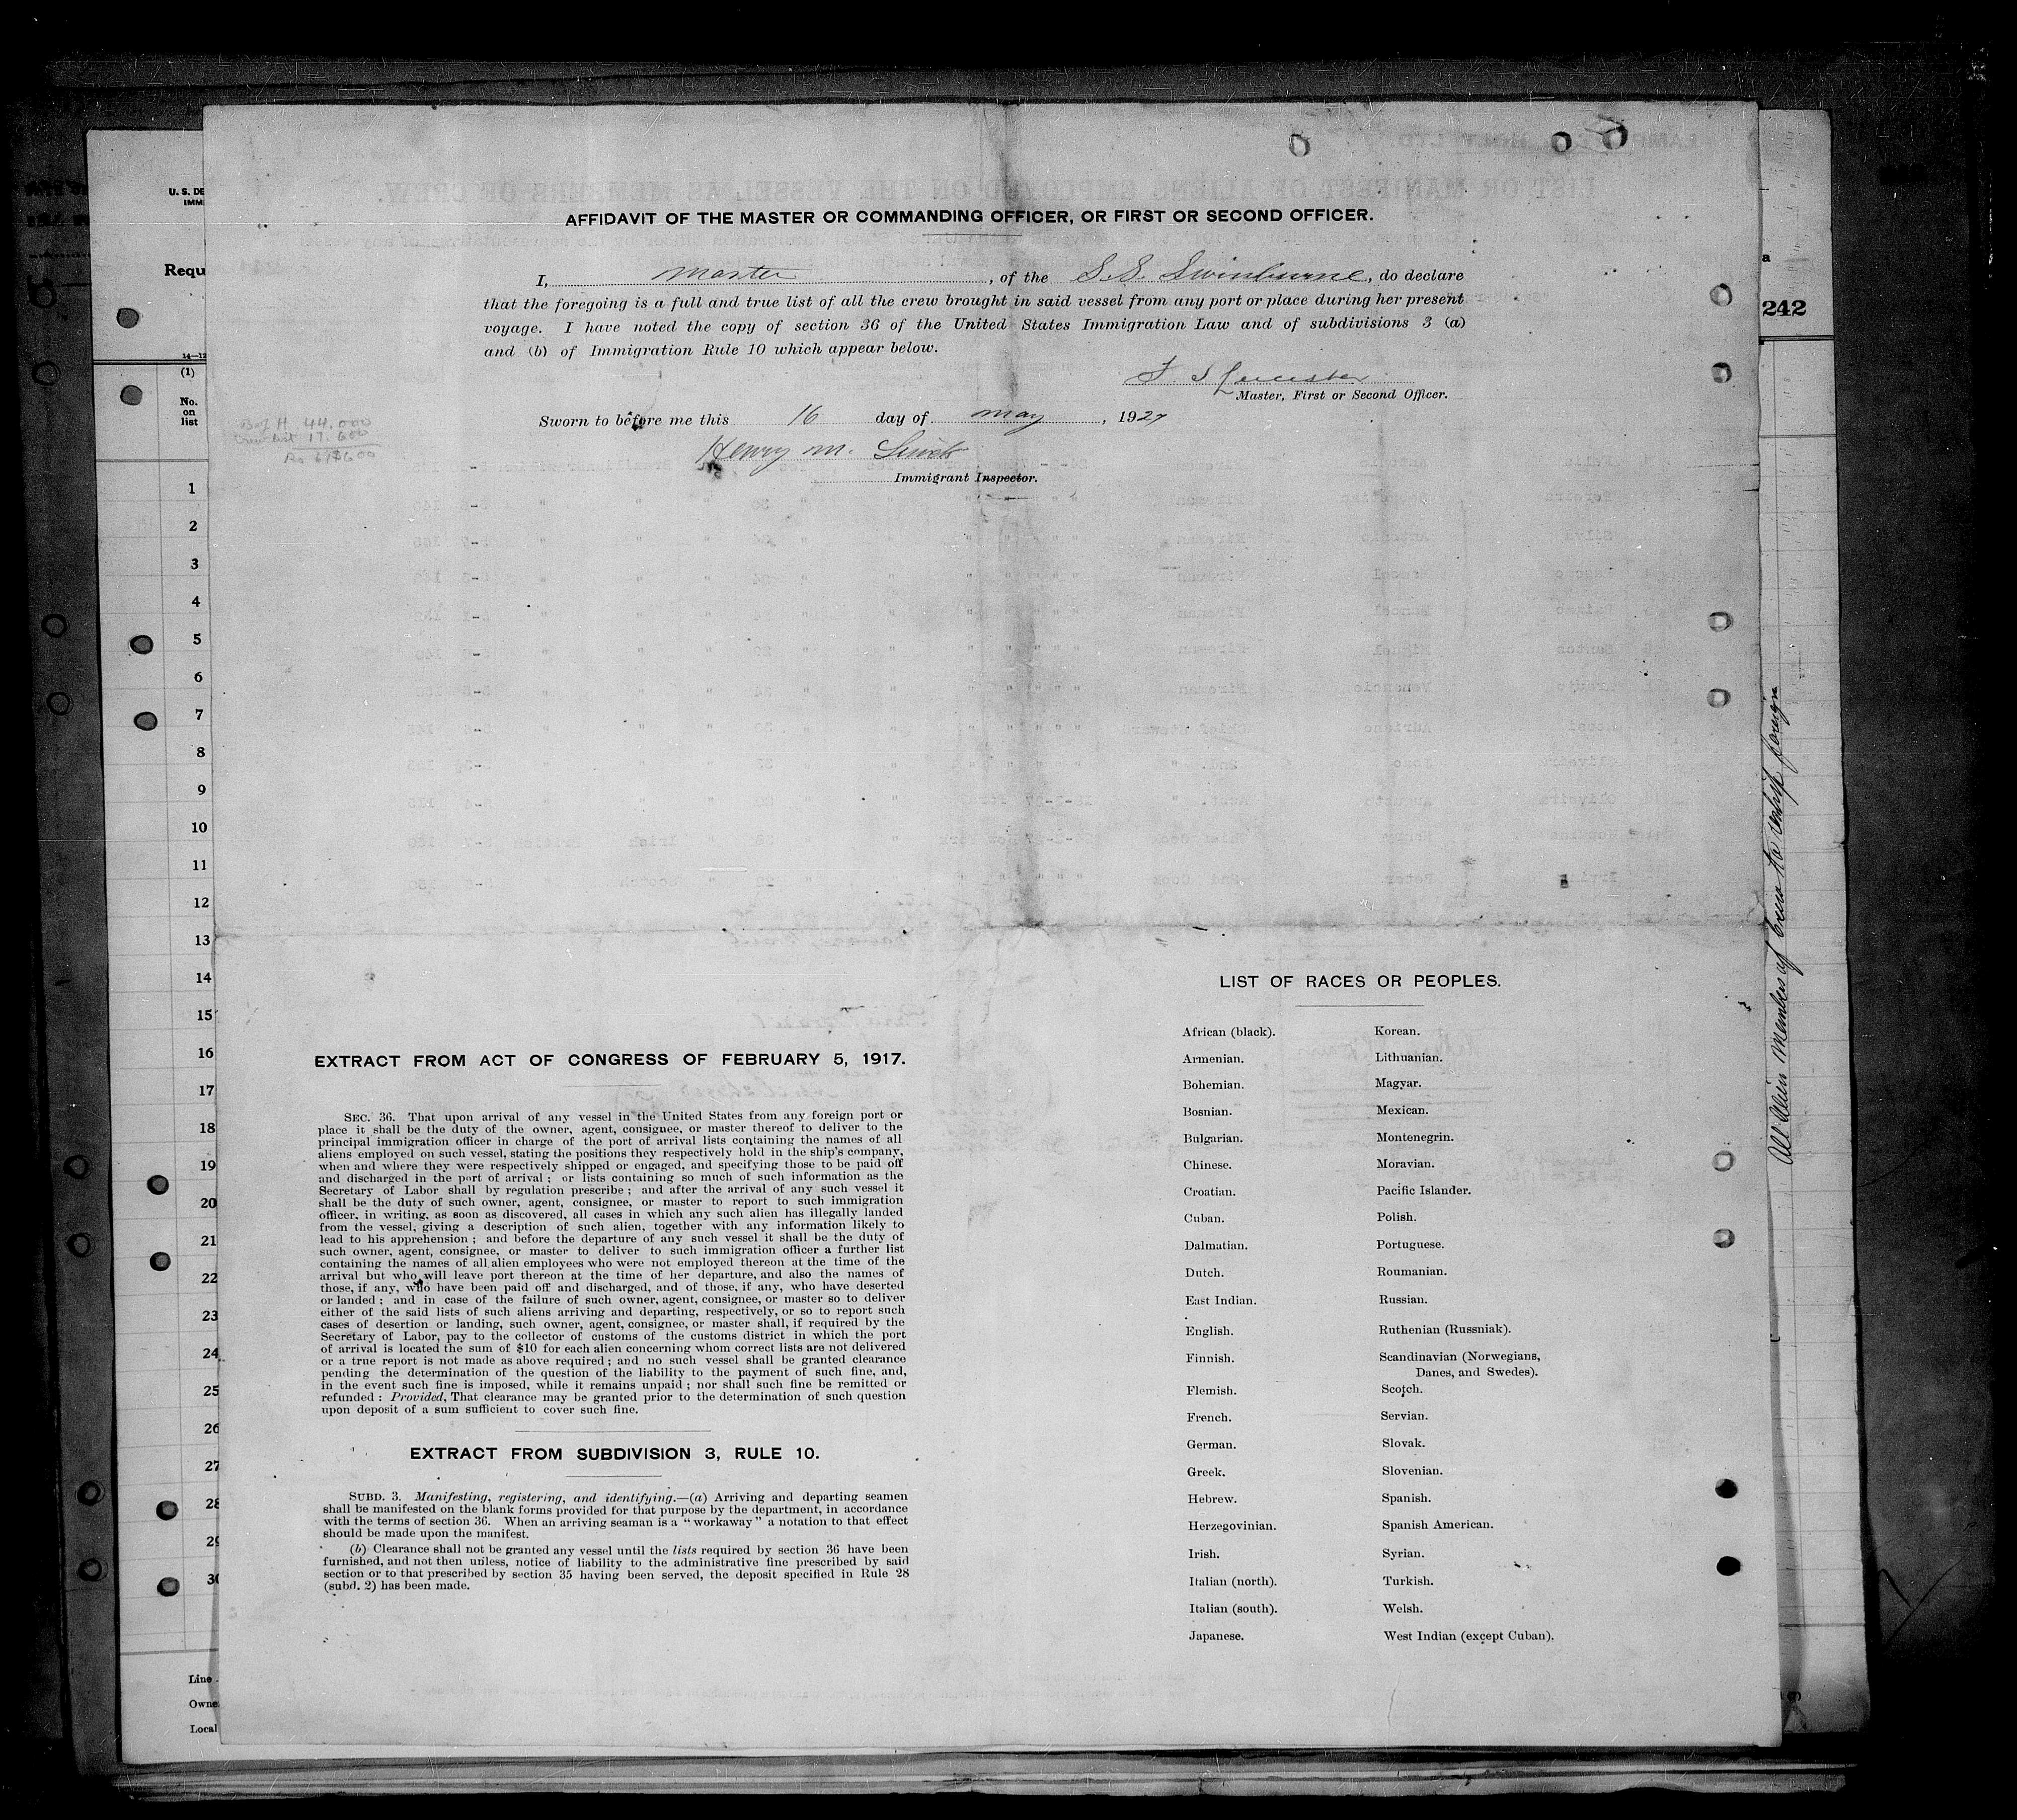 AFFIDAVIT OF THE MASTER OR COMMANDING OFFICER, OR FIRST OR SECOND OFFICER.
I, Master, of the S.S. Swinburne, do declare
that the foregoing is a full and true list of all the crew brought in said vessel from any port or place during her present
voyage. I have noted the copy of section 36 of the United States Immigration Law and of subdivisions 3 (a)
and (b) of Immigration Rule 10 which appear below.
Master, First or Second Officer.
Sworn to before me this 16 day of May, 1927
Henry M.
Immigrant Inspector.
B of H 44.000
Crew list 17.600
U. S. DE
IMM
Requ
14—12
(1)
No.
on
list
1
2
3
4
5
6
7
8
9
10
11
12
13
14
15
16
17
18
19
20
21
22
23
24
25
26
27
28
29
30
Line
Owne
Local
EXTRACT FROM ACT OF CONGRESS OF FEBRUARY 5, 1917.
SEC. 36. That upon arrival of any vessel in the United States from any foreign port or
place it shall be the duty of the owner, agent, consignee, or master thereof to deliver to the
principal immigration officer in charge of the port of arrival lists containing the names of all
aliens employed on such vessel, stating the positions they respectively hold in the ship's company,
when and where they were respectively shipped or engaged, and specifying those to be paid off
and discharged in the port of arrival; or lists containing so much of such information as the
Secretary of Labor shall by regulation prescribe; and after the arrival of any such vessel it
shall be the duty of such owner, agent, consignee, or master to report to such immigration
officer, in writing, as soon as discovered, all cases in which any such alien has illegally landed
from the vessel, giving a description of such alien, together with any information likely to
lead to his apprehension; and before the departure of any such vessel it shall be the duty of
such owner, agent, consignee, or master to deliver to such immigration officer a further list
containing the names of all alien employees who were not employed thereon at the time of the
arrival but who will leave port thereon at the time of her departure, and also the names of
those, if any, who have been paid off and discharged, and of those, if any, who have deserted
or landed; and in case of the failure of such owner, agent, consignee, or master so to deliver
either of the said lists of such aliens arriving and departing, respectively, or so to report such
cases of desertion or landing, such owner, agent, consignee, or master shall, if required by the
Secretary of Labor, pay to the collector of customs of the customs district in which the port
of arrival is located the sum of $10 for each alien concerning whom correct lists are not delivered
or a true report is not made as above required; and no such vessel shall be granted clearance
pending the determination of the question of the liability to the payment of such fine, and,
in the event such fine is imposed, while it remains unpaid; nor shall such fine be remitted or
refunded: Provided, That clearance may be granted prior to the determination of such question
upon deposit of a sum sufficient to cover such fine.
EXTRACT FROM SUBDIVISION 3, RULE 10.
SUBD. 3. Manifesting, registering, and identifying.—(a) Arriving and departing seamen
shall be manifested on the blank forms provided for that purpose by the department, in accordance
with the terms of section 36. When an arriving seaman is a "workaway" a notation to that effect
should be made upon the manifest.
(b) Clearance shall not be granted any vessel until the lists required by section 36 have been
furnished, and not then unless, notice of liability to the administrative fine prescribed by said
section or to that prescribed by section 35 having been served, the deposit specified in Rule 28
(subd. 2) has been made.
LIST OF RACES OR PEOPLES.
African (black).
Armenian.
Bohemian.
Bosnian.
Bulgarian.
Chinese.
Croatian.
Cuban.
Dalmatian.
Dutch.
East Indian.
English.
Finnish.
Flemish.
French.
German.
Greek.
Hebrew.
Herzegovinian.
Irish.
Italian (north).
Italian (south).
Japanese.
Korean.
Lithuanian.
Magyar.
Mexican.
Montenegrin.
Moravian.
Pacific Islander.
Polish.
Portuguese.
Roumanian.
Russian.
Ruthenian (Russniak).
Scandinavian (Norwegians,
Danes, and Swedes).
Scotch.
Servian.
Slovak.
Slovenian.
Spanish.
Spanish American.
Syrian.
Turkish.
Welsh.
West Indian (except Cuban).
242
All Alien Members of Crew to reship foreign